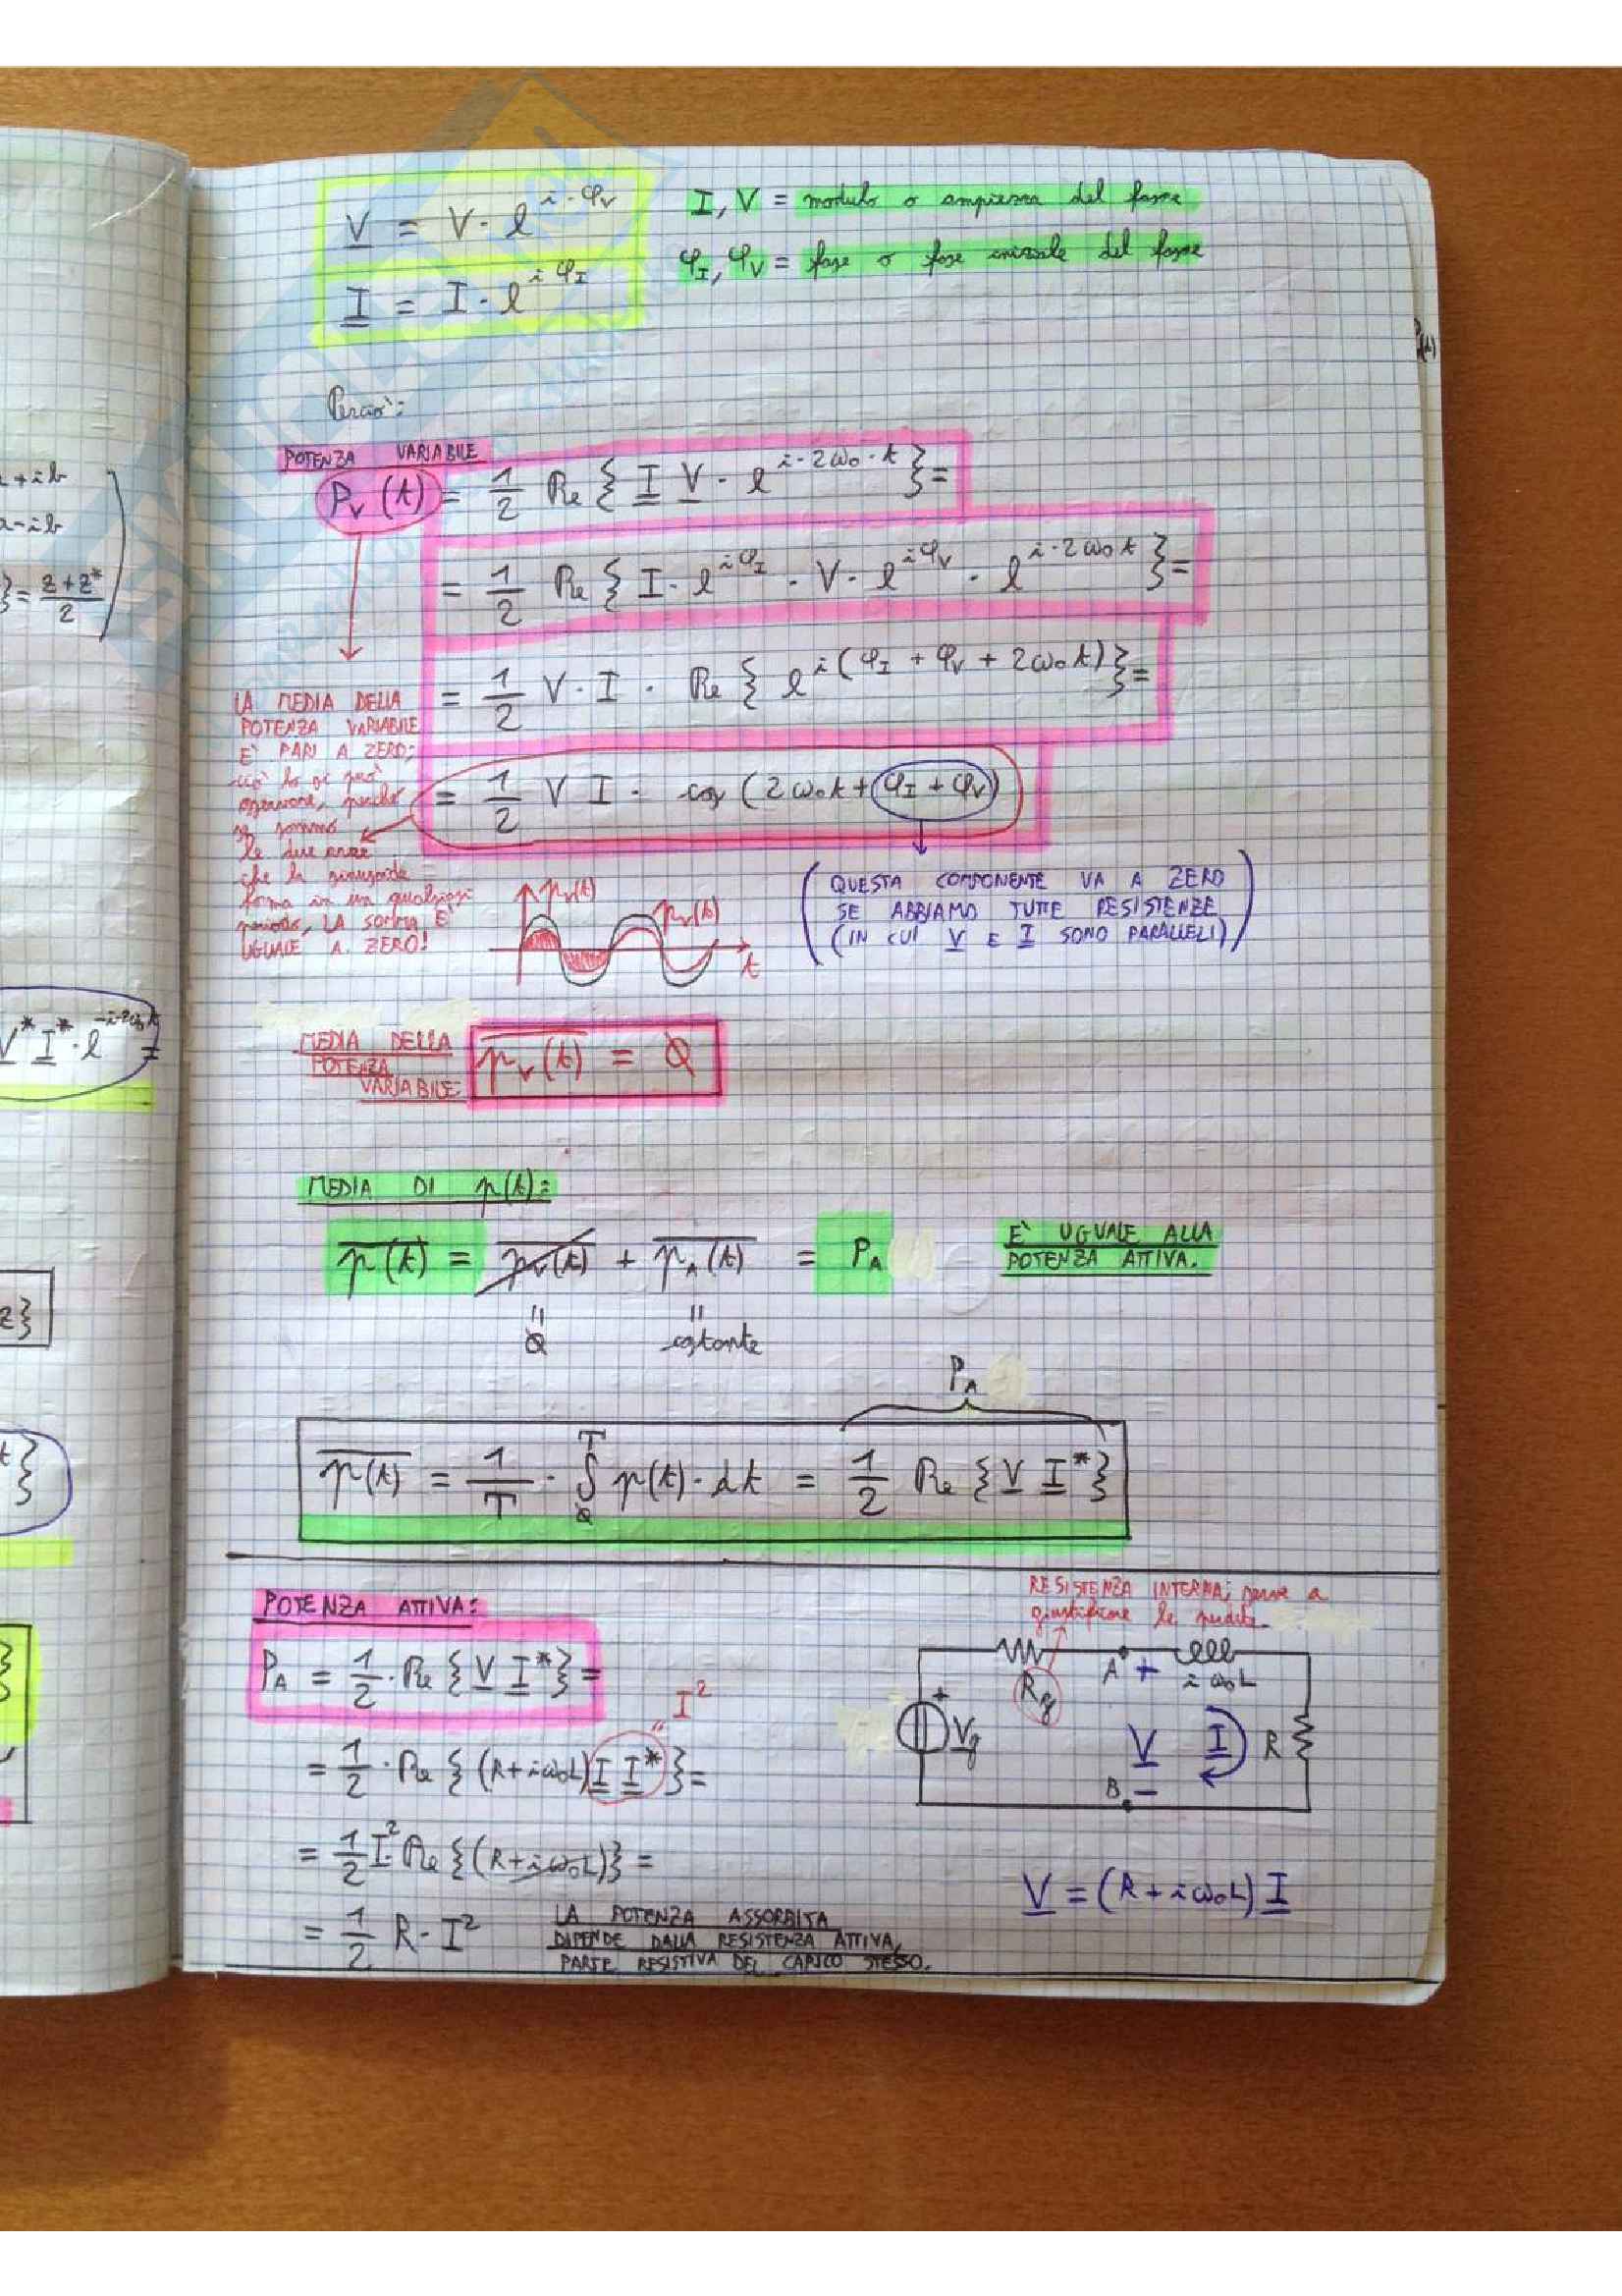 V = V · e^{i·φ_V}
I, V = modulo o ampiezza del fasore
I = I · e^{iφ_I}
φ_I, φ_V = fase o fase iniziale del fasore
Perciò:
POTENZA VARIABILE
P_V(t) = 1/2 Re { I V · e^{i·2ω₀·t} } =
= 1/2 Re { I · e^{iφ_I} · V · e^{iφ_V} · e^{i·2ω₀t} } =
= 1/2 V · I · Re { e^{i(φ_I + φ_V + 2ω₀t)} } =
= 1/2 V I · cos (2ω₀t + φ_I + φ_V)
LA MEDIA DELLA
POTENZA VARIABILE
E' PARI A ZERO;
ciò lo si può
osservare, perché
se sommo
le due aree
che la sinusoide
forma in un qualsiasi
periodo, LA SOMMA È
UGUALE A ZERO!
p_v(t)
p_v(t)
t
(QUESTA COMPONENTE VA A ZERO
SE ABBIAMO TUTTE RESISTENZE
(IN CUI V E I SONO PARALLELI))
MEDIA DELLA
POTENZA
VARIABILE:
p_v(t) = 0
MEDIA DI p(t):
p(t) = p_v(t) + p_A(t) = P_A
E' UGUALE ALLA
POTENZA ATTIVA.
= 0
= costante
P_A
p(t) = 1/T · ∫₀^T p(t) · dt = 1/2 Re { V I* }
POTENZA ATTIVA:
P_A = 1/2 · Re { V I* } =
= 1/2 · Re { (R+iω₀L) I I* } =
" I²
= 1/2 I² Re { (R+iω₀L) } =
= 1/2 R · I²
LA POTENZA ASSORBITA
DIPENDE DALLA RESISTENZA ATTIVA,
PARTE RESISTIVA DEL CARICO STESSO.
RESISTENZA INTERNA; serve a
giustificare le perdite.
R_g
A +
iω₀L
+
V_g
V
I
R
B −
V = (R + iω₀L) I
a+ib
a-ib
} = z+z*/2
V* I* · e^{-i·2ω₀t} =
z}
t}
p(t)